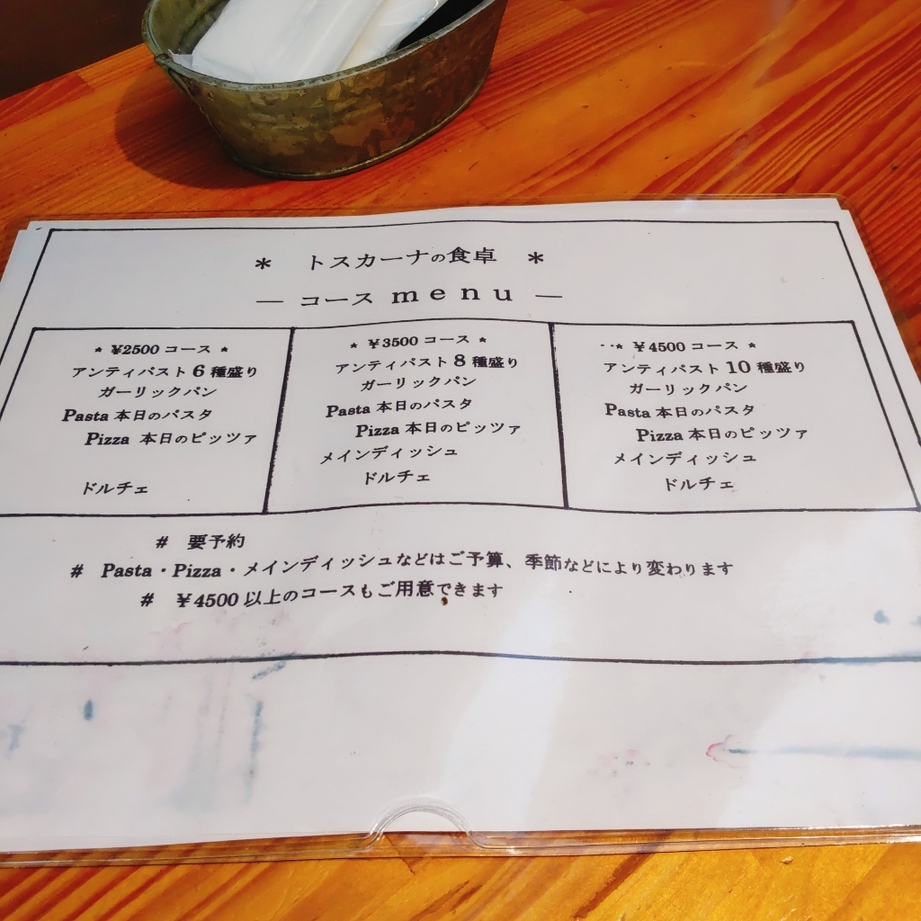 * トスカーナの食卓 *
— コース menu —
* ¥2500 コース *
アンティパスト 6 種盛り
ガーリックパン
Pasta 本日のパスタ
Pizza 本日のピッツァ
ドルチェ
* ¥3500 コース *
アンティパスト 8 種盛り
ガーリックパン
Pasta 本日のパスタ
Pizza 本日のピッツァ
メインディッシュ
ドルチェ
··* ¥4500 コース *
アンティパスト 10 種盛り
ガーリックパン
Pasta 本日のパスタ
Pizza 本日のピッツァ
メインディッシュ
ドルチェ
# 要予約
# Pasta・Pizza・メインディッシュなどはご予算、季節などにより変わります
# ¥4500 以上のコースもご用意できます